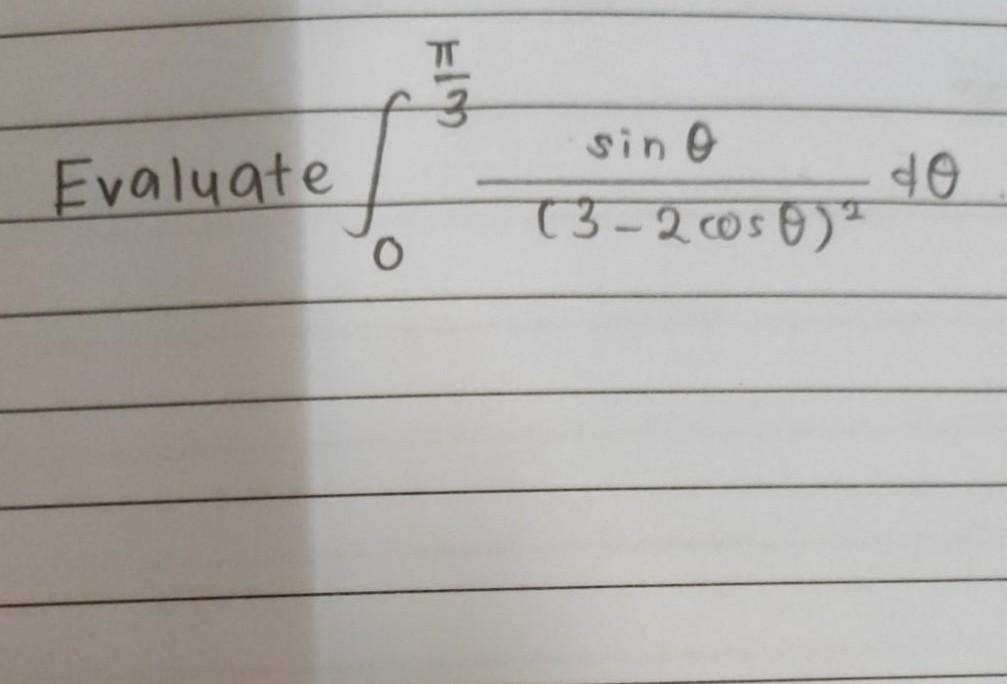 Evaluate ∫₀^(π/3) sin θ / (3 - 2 cos θ)² dθ